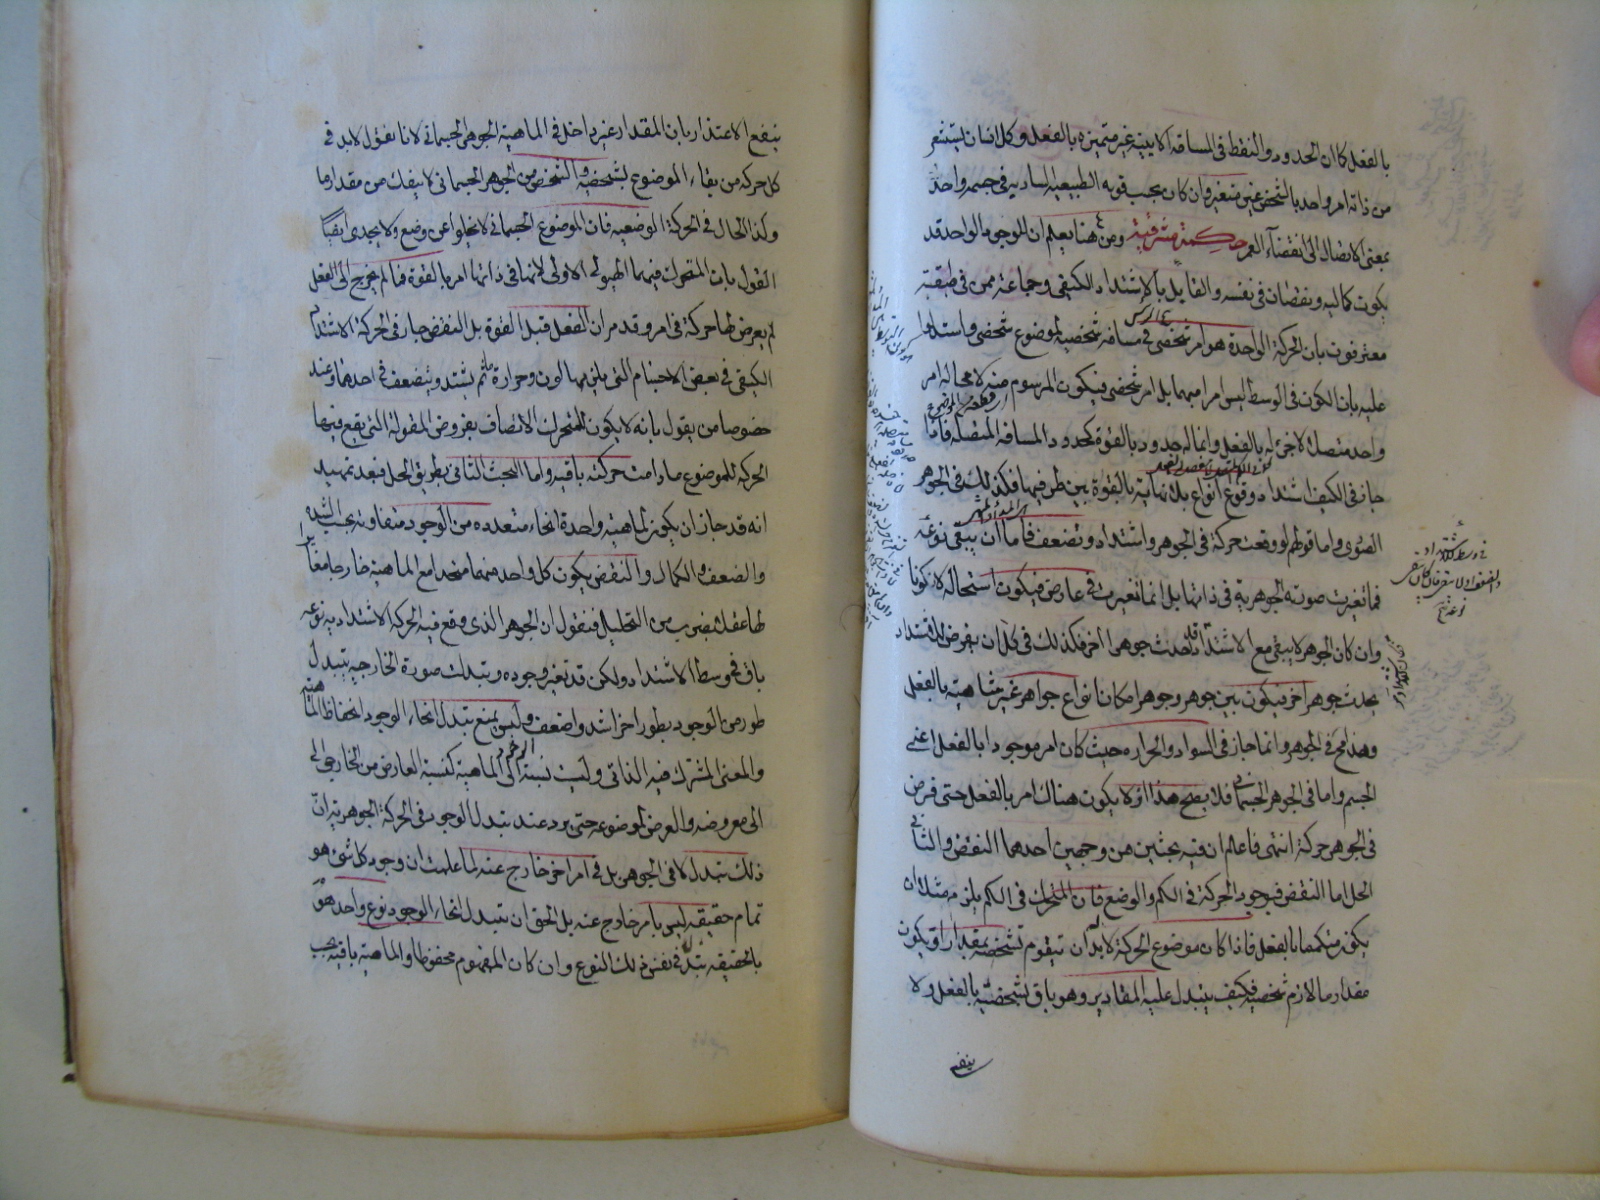 بالفعل كما ان الحدود والنقط في المسافة الاينية غير متميزة بالفعل وكل انسان يستشعر
من ذاته امر واحد بالشخص غير متغير وان كان بحسب قوته الطبيعية السارية في جسمه واحد
بمعنى الاتصال الى انقضاء العمر حكمة مشرقية ومن هنا يعلم ان الموجود الواحد قد
يكون كماليه ونقصان في نفسه والقايل بالاشتداد الكيفي وجماعة ممن في طبقته
معترفون بان الحركة الواحدة هو امر شخصي في مسافة شخصية لموضوع شخصي واستدلوا
عليه بان الكون في الوسط ليس امرا مبهما بل امر شخصي فيكون المرسوم منه لا محالة امر
واحد متصل لا جزء له بالفعل وانما له حدود بالقوة كحدود المسافة المتصلة فاذا
جاز في الكيف اشتداد وقوع انواع بلا نهاية بالقوة بين طرفيها فكذلك في الجوهر
الصوري واما قولهم لو وقعت حركة في الجوهر واشتداد وتضعف فاما ان يبقى نوعه
فما تغيرت صورته الجوهرية في ذاتها بل انما تغيرت في عارض فيكون استحالة لا كونا
وان كان الجوهر لا يبقى مع الاشتداد فقد حدث جوهر اخر فكذلك في كل ان يفرض للاشتداد
يحدث جوهر اخر فيكون بين جوهر وجوهر امكان انواع جواهر غير متناهية بالفعل
وهذا مح في الجوهر وانما جاز في السواد والحرارة حيث كان امر موجود بالفعل اعني
الجسم واما في الجوهر الجسماني فلا يصح هذا اذ لا يكون هناك امر بالفعل حتى فرض
في الجوهر حركة انتهى فاعلم ان فيه بحثين من وجهين احدهما النقض والثاني
الحل اما النقض فبوجود الحركة في الكم والوضع فان المتحرك في الكم يلزم مثلا ان
يكون متكمما بالفعل فاذا كان موضوع الحركة لا بد ان يتقوم تشخصه بمقدار او يكون
مقدار ما لازم شخصيته فكيف يتبدل عليه المقادير وهو باق بشخصيته بالفعل ولا
ينفع
ينفع الاعتذار بان المقدار غير داخل في الماهية الجوهر الجسماني لانا نقول لا بد في
كل حركة من بقاء الموضوع بشخصه والشخص من الجوهر الجسماني لا ينفك من مقدار ما
وكذا الحال في الحركة الوضعية فان الموضوع الجسماني لا يخلوا عن وضع ولا يجدي ايضا
القول بان المتحرك فيهما الهيولى الاولى لانها في ذاتها امر بالقوة فما لم يخرج الى الفعل
لم يعرض لها حركة في امر وقد مر ان الفعل قبل القوة بل النقض جار في الحركة الاشتدادية
الكيفي في بعض الاجسام التي يلزمها لون وحرارة ما ثم يشتد ويتضعف في احدهما وعند
خصوصا من يقول بانه لا يكون للمتحرك الاتصاف بفروض المقولة التي يقع فيها
الحركة للموضوع ما دامت حركته باقية واما البحث الثاني بطريق الحل فبعد تمهيد
انه قد جاز ان يكون لماهية واحدة انحاء متعددة من الوجود متفاوته بحسب الشدة
والضعف والكمال والنقص يكون كل واحد منها متحدا مع الماهية خارجا مغايرا
لها عقلا بضرب من التحليل فنقول ان الجوهر الذي وقع فيه الحركة الاشتدادية نوعه
باق في وسط الاشتداد ولكن قد تغير وجوده وتبدلت صورة الخارجية بتبدل
طور من الوجود بطور اخر اشد واضعف وليس يمنع تبدل انحاء الوجود انحفاظ الماهية
والمعنى المشترك فيه الذاتي وليست نسبة الوجود الى الماهية كنسبة العارض من الخارجي الى
الى معروضه والعرض لموضوعه حتى يرد عند تبدل الوجود في الحركة الجوهرية ان
ذلك تبدل لا في الجوهر بل في امر اخر خارج عنه لما علمت ان وجود كل شئ هو
تمام حقيقته ليس بامر خارج عنه بل الحق ان تبدل انحاء الوجود نوع واحد هو
بالحقيقة تبدل في نفس ذلك النوع وان كان المفهوم محفوظا والماهية باقية بحسب